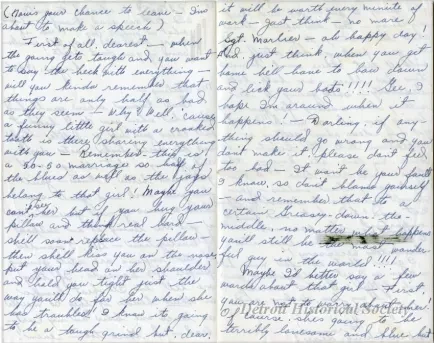 (Now's your chance to leave - I'm
about to make a speech)
First of all, dearest - when
the going gets tough and you want
to say the heck with everything -
will you kinda remember that
things are only half as bad
as they seem - Why? Well, 'cause
a funny little girl with a crooked
tooth is there sharing everything
with you - Remember, this is
a 50-50 marriage so half of
the blues as well as the joys
belong to that girl! Maybe you
can't see her but if you hug your
pillow and think real hard -
she'll soon replace the pillow -
then she'll kiss you on the nose,
put your head on her shoulder
and hold you tight just the
way you'll do for her when she
has troubles! I know it's going
to be a tough grind but, dear,
it will be worth every minute of
work - just think - no more of
Sgt. - oh happy day!
And, just think, when you get
home he'll have to bow down
and lick your boots!!!! Gee, I
hope I'm around when it
happens! - Darling, if any-
thing should go wrong and you
don't make it, please don't feel
too bad - It won't be your fault
I know, so don't blame yourself
- and remember that to a
certain Greasy-down-the-
middle, no matter what happens
you'll still be the most wonder-
ful guy in the world!!!
Maybe I'd better say a few
words about that girl - First,
you are not to worry about her!
Of course, she's going to be
terribly lonesome and blue but
© Detroit Historical Society